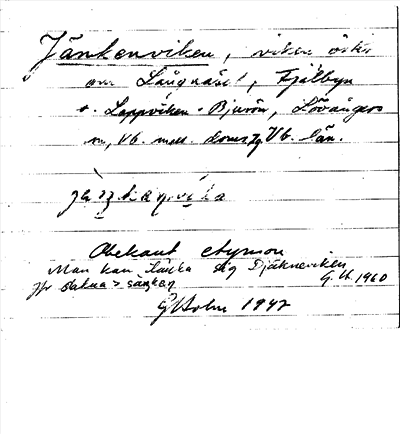 Jänkenviken, viken öster
om Långnäset, Fjälbyn
o. Lappviken - Bjurön, Lövångers
sn, Vb. mell. doms., Vb. län.
Obekant etymon
Man kan tänka sig Djäkneviken
jfr sakna > saŋken G. H. 1960
G Holm 1947